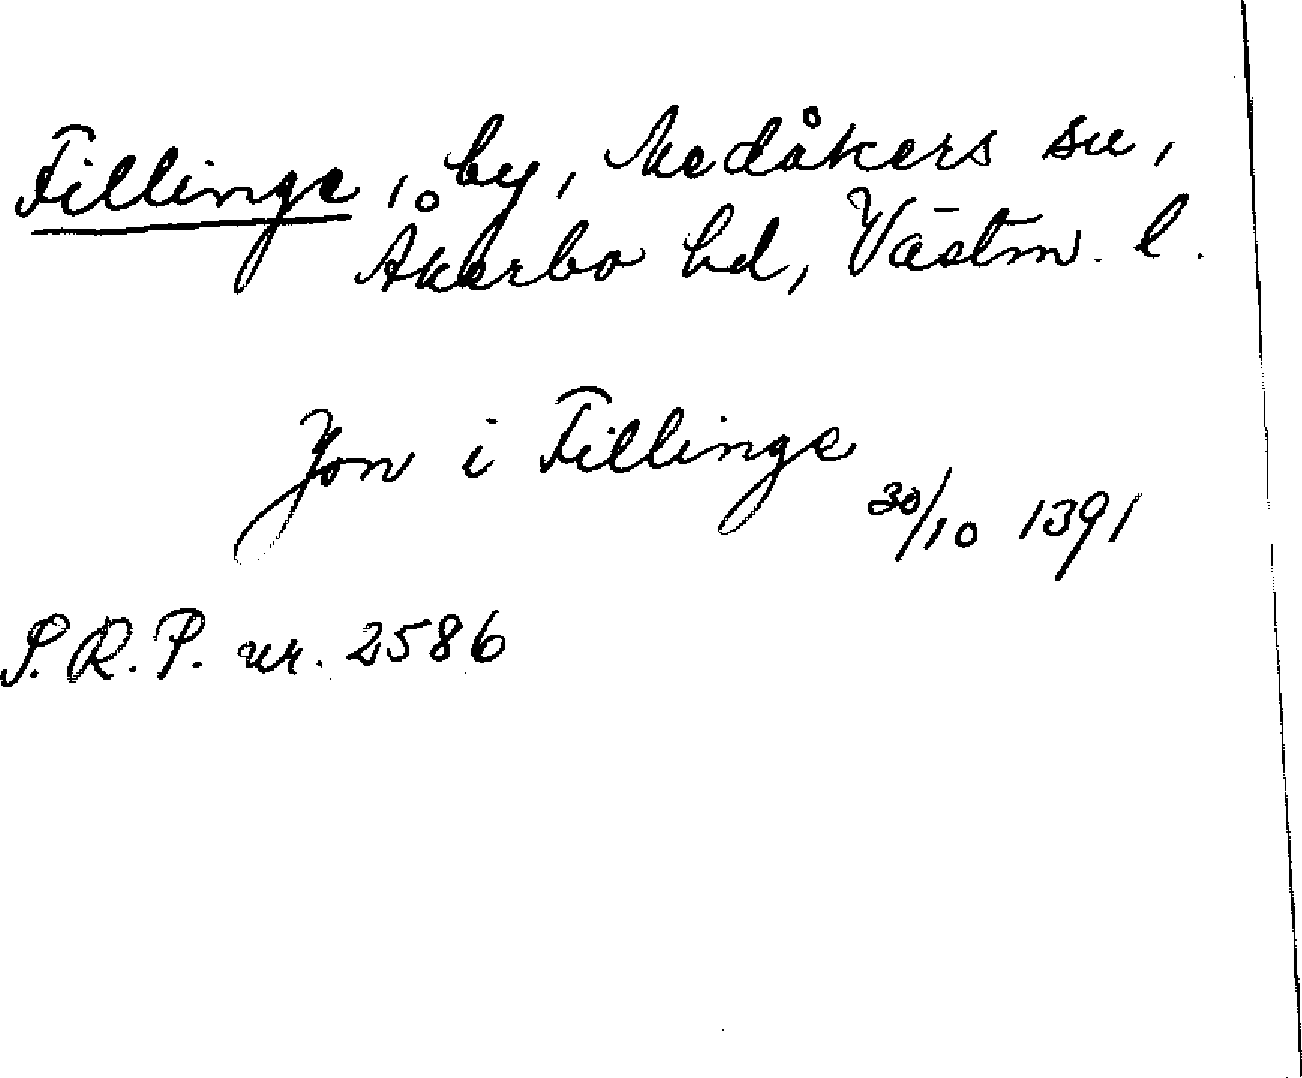 Fillinge, by, Medåkers sn,
Åkerbo hd, Västm. l.
Jon i Fillinge
30/10 1391
S.R.P. nr. 2586